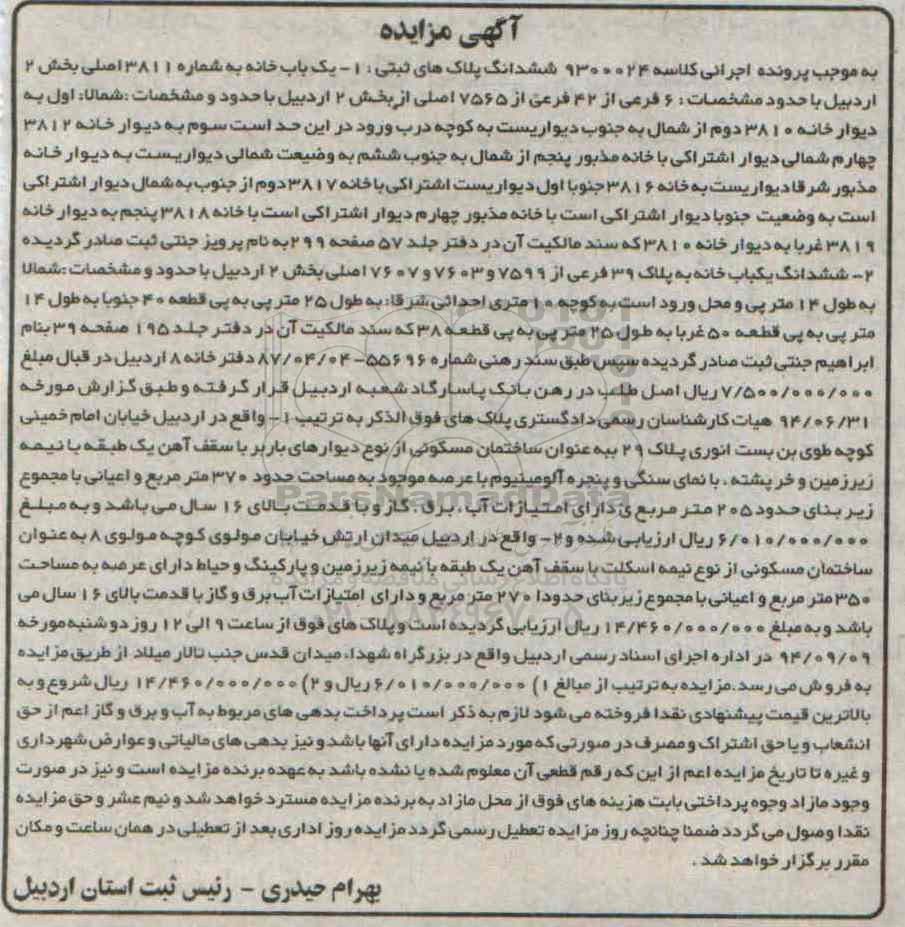 آگهی مزایده
به موجب پرونده اجرائی کلاسه ۹۳۰۰۰۲۴ ششدانگ پلاک های ثبتی : ۱- یک باب خانه به شماره ۳۸۱۱ اصلی بخش ۲
اردبیل با حدود مشخصات : ۶ فرعی از ۴۲ فرعی از ۷۵۶۵ اصلی از بخش ۲ اردبیل با حدود و مشخصات :شمالا: اول به
دیوار خانه ۳۸۱۰ دوم از شمال به جنوب دیواریست به کوچه درب ورود در این حد است سوم به دیوار خانه ۳۸۱۲
چهارم شمالی دیوار اشتراکی با خانه مذبور پنجم از شمال به جنوب ششم به وضیعت شمالی دیواریست به دیوار خانه
مذبور شرقا دیواریست به خانه ۳۸۱۶ جنوبا اول دیواریست اشتراکی با خانه ۳۸۱۷ دوم از جنوب به شمال دیوار اشتراکی
است به وضعیت جنوبا دیوار اشتراکی است با خانه مذبور چهارم دیوار اشتراکی است با خانه ۳۸۱۸ پنجم به دیوار خانه
۳۸۱۹ غربا به دیوار خانه ۳۸۱۰ که سند مالکیت آن در دفتر جلد ۵۷ صفحه ۲۹۹ به نام پرویز جنتی ثبت صادر گردیده
۲- ششدانگ یکباب خانه به پلاک ۳۹ فرعی از ۷۵۹۹ و ۷۶۰۳ و ۷۶۰۷ اصلی بخش ۲ اردبیل با حدود و مشخصات :شمالا
به طول ۱۴ متر پی و محل ورود است به کوچه ۱۰ متری احداثی شرقا: به طول ۲۵ متر پی به پی قطعه ۴۰ جنوبا به طول ۱۴
متر پی به پی قطعه ۵۰ غربا به طول ۲۵ متر پی به پی قطعه ۳۸ که سند مالکیت آن در دفتر جلد ۱۹۵ صفحه ۳۹ بنام
ابراهیم جنتی ثبت صادر گردیده سپس طبق سند رهنی شماره ۵۵۶۹۶۰-۸۷/۰۴/۰۴ دفتر خانه ۸ اردبیل در قبال مبلغ
۷/۵۰۰/۰۰۰/۰۰۰ ریال اصل طلب در رهن بانک پاسارگاد شعبه اردبیل قرار گرفته و طبق گزارش مورخه
۹۴/۰۶/۳۱ هیات کارشناسان رسمی دادگستری پلاک های فوق الذکر به ترتیب ۱- واقع در اردبیل خیابان امام خمینی
کوچه طوی بن بست انوری پلاک ۲۹ ببه عنوان ساختمان مسکونی از نوع دیوارهای باربر با سقف آهن یک طبقه با نیمه
زیرزمین و خر پشته ، با نمای سنگی و پنجره آلومینیوم با عرصه موجود به مساحت حدود ۳۷۰ متر مربع و اعیانی با مجموع
زیر بنای حدود ۲۰۵ متر مربع ی دارای امتیازات آب ، برق ، گاز و با قدمت بالای ۱۶ سال می باشد و به مبلغ
۶/۰۱۰/۰۰۰/۰۰۰ ریال ارزیابی شده و ۲- واقع در اردبیل میدان ارتش خیابان مولوی کوچه مولوی ۸ به عنوان
ساختمان مسکونی از نوع نیمه اسکلت با سقف آهن یک طبقه با نیمه زیرزمین و پارکینگ و حیاط دارای عرصه به مساحت
۳۵۰ متر مربع و اعیانی با مجموع زیربنای حدودا ۲۷۰ متر مربع و دارای امتیازات آب برق و گاز با قدمت بالای ۱۶ سال می
باشد و به مبلغ ۱۴/۴۶۰/۰۰۰/۰۰۰ ریال ارزیابی گردیده است و پلاک های فوق از ساعت ۹ الی ۱۲ روز دوشنبه مورخه
۹۴/۰۹/۰۹ در اداره اجرای اسناد رسمی اردبیل واقع در بزرگراه شهدا، میدان قدس جنب تالار میلاد از طریق مزایده
به فروش می رسد.مزایده به ترتیب از مبالغ ۱) ۶/۰۱۰/۰۰۰/۰۰۰ ریال و ۲) ۱۴/۴۶۰/۰۰۰/۰۰۰ ریال شروع و به
بالاترین قیمت پیشنهادی نقدا فروخته می شود لازم به ذکر است پرداخت بدهی های مربوط به آب و برق و گاز اعم از حق
انشعاب و یا حق اشتراک و مصرف در صورتی که مورد مزایده دارای آنها باشد و نیز بدهی های مالیاتی و عوارض شهرداری
و غیره تا تاریخ مزایده اعم از این که رقم قطعی آن معلوم شده یا نشده باشد به عهده برنده مزایده است و نیز در صورت
وجود مازاد وجوه پرداختی بابت هزینه های فوق از محل مازاد به برنده مزایده مسترد خواهد شد و نیم عشر و حق مزایده
نقدا وصول می گردد ضمنا چنانچه روز مزایده تعطیل رسمی گردد مزایده روز اداری بعد از تعطیلی در همان ساعت و مکان
مقرر برگزار خواهد شد .
بهرام حیدری - رئیس ثبت استان اردبیل
ParsNamadData
پایگاه اطلاع رسانی مناقصه و مزایده